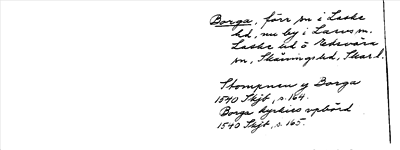 Borga, förr sn i Laske
hd, nu by i Larvs sn.
Laske hd o Edsvära
sn, Skånings hd, Skarab.
Stompnen y Borga
1540 Skjb, s. 164.
Borga kyrkies upbörd
1540 Skjb, s. 165.